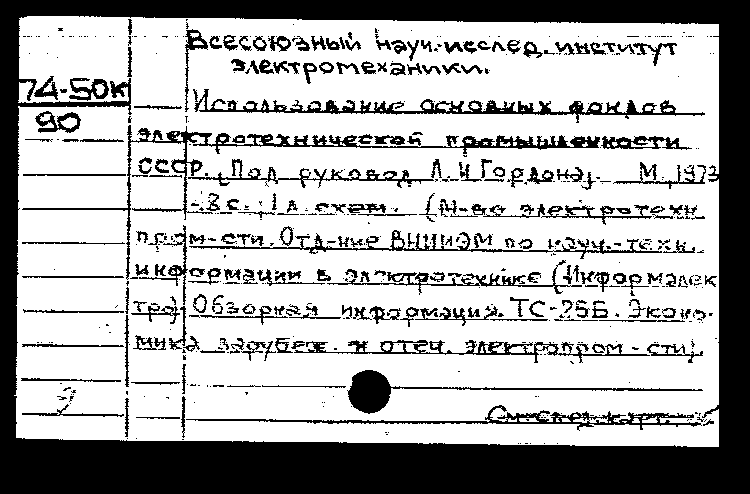 Всесоюзный науч.-исслед. институт
электромеханики.
74-50к
90
Использование основных фондов
электротехнической промышленности
СССР. [Под руковод. Л.И Гордона]. М., 1973
- 8 с.; 1 л. схем. (М-во электротехн.
пром-сти. Отд-ние ВНИИЭМ по науч.-техн.
информации в электротехнике (Информэлек
тро). Обзорная информация. ТС-25Б. Эконо-
мика зарубеж. и отеч. электропром-сти).
Э
См. след. карт.